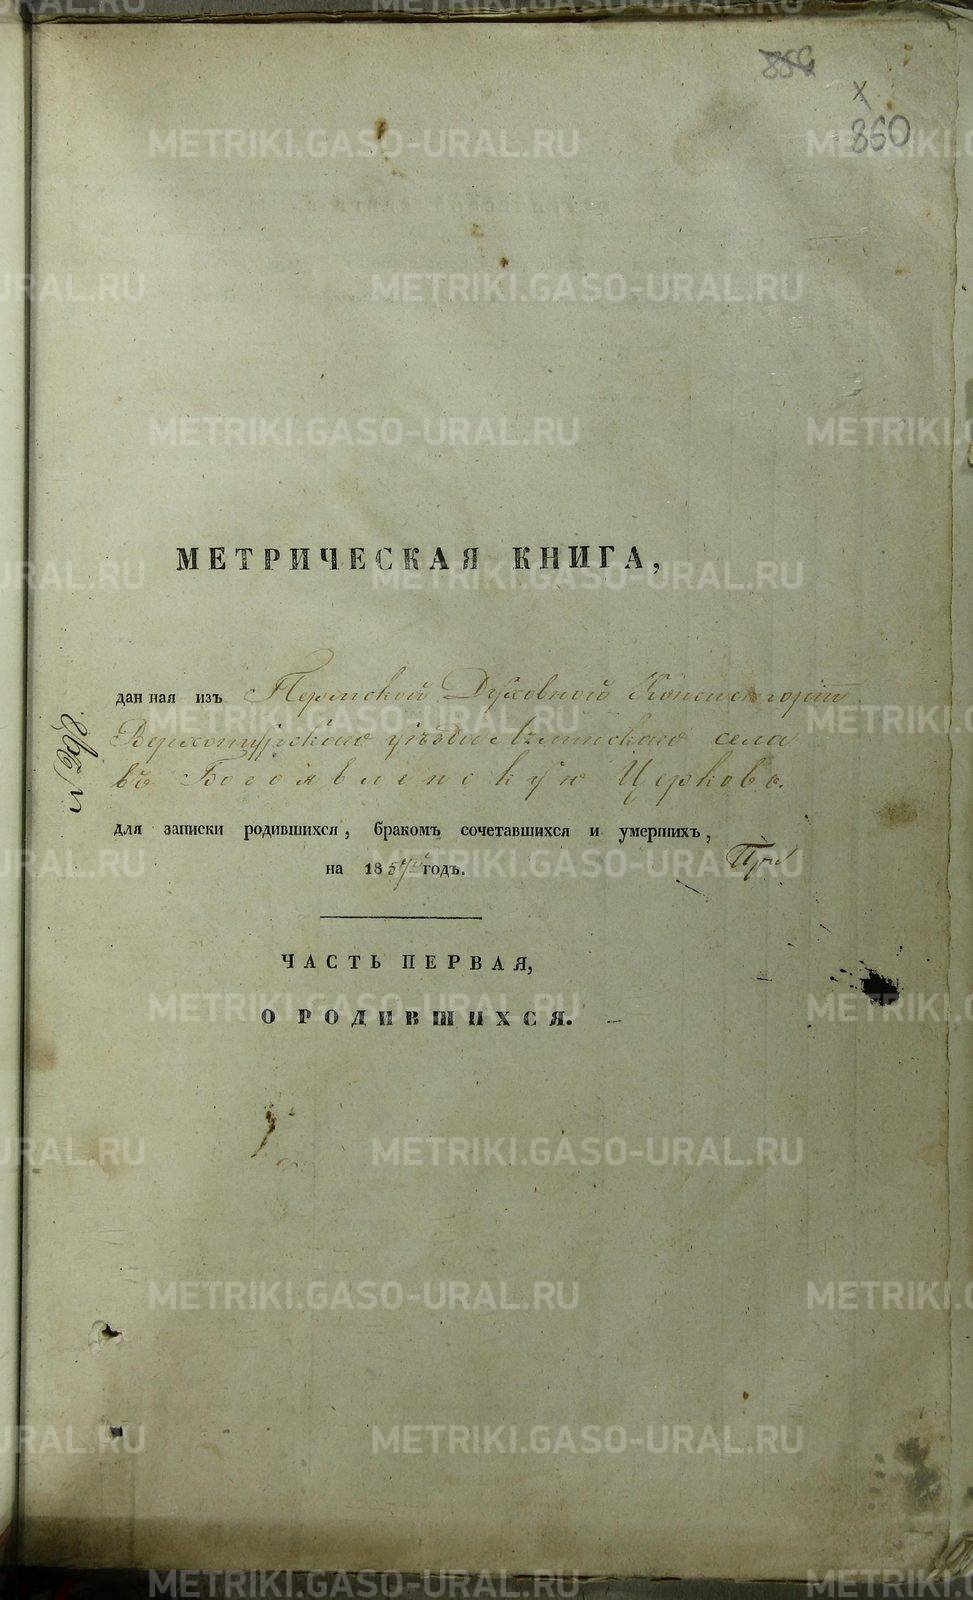 856
х
860
МЕТРИЧЕСКАЯ КНИГА,
данная изъ Пермской Духовной Консисторіи
Верхотурскаго уѣзда села
въ Богоявленскую Церковь.
для записки родившихся, бракомъ сочетавшихся и умершихъ,
на 1857й годъ.
При
ЧАСТЬ ПЕРВАЯ,
О РОДИВШИХСЯ.
METRIKI.GASO-URAL.RU